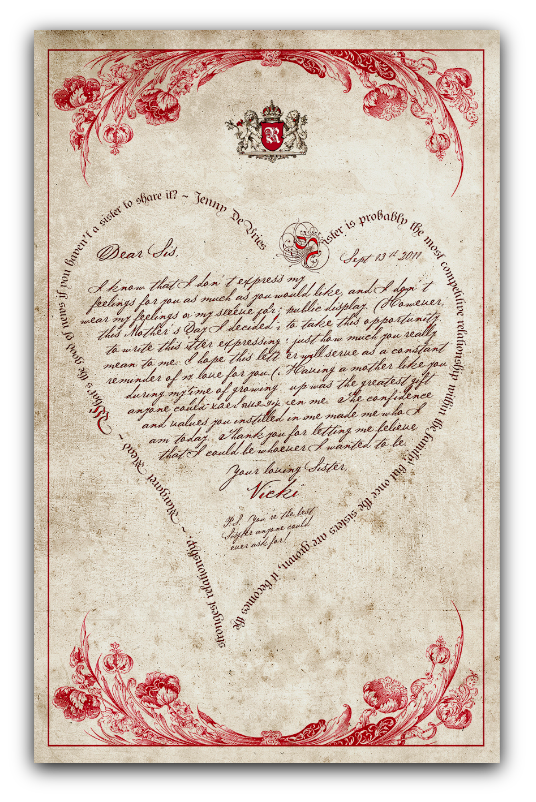 R
Sister is probably the most competitive relationship within the family, but once the sisters are grown, it becomes the strongest relationship. ~ Margaret Mead ~ What's the good of news if you haven't a sister to share it? ~ Jenny DeVries
Dear Sis,
Sept 13th 2011
I know that I don't express my
feelings for you as much as you would like, and I don't
wear my feelings on my sleeve for public display. (However,
this Mother's Day I decided to take this opportunity
to write this letter expressing just how much you really
mean to me. I hope this letter will serve as a constant
reminder of love for you. (Having a mother like you
during my time of growing up was the greatest gift
anyone could have given me. The confidence
and values you instilled in me made me who I
am today. Thank you for letting me believe
that I could be whoever I wanted to be.
Your loving Sister,
Vicki
P.S. You're the best
anyone could
ever ask for!